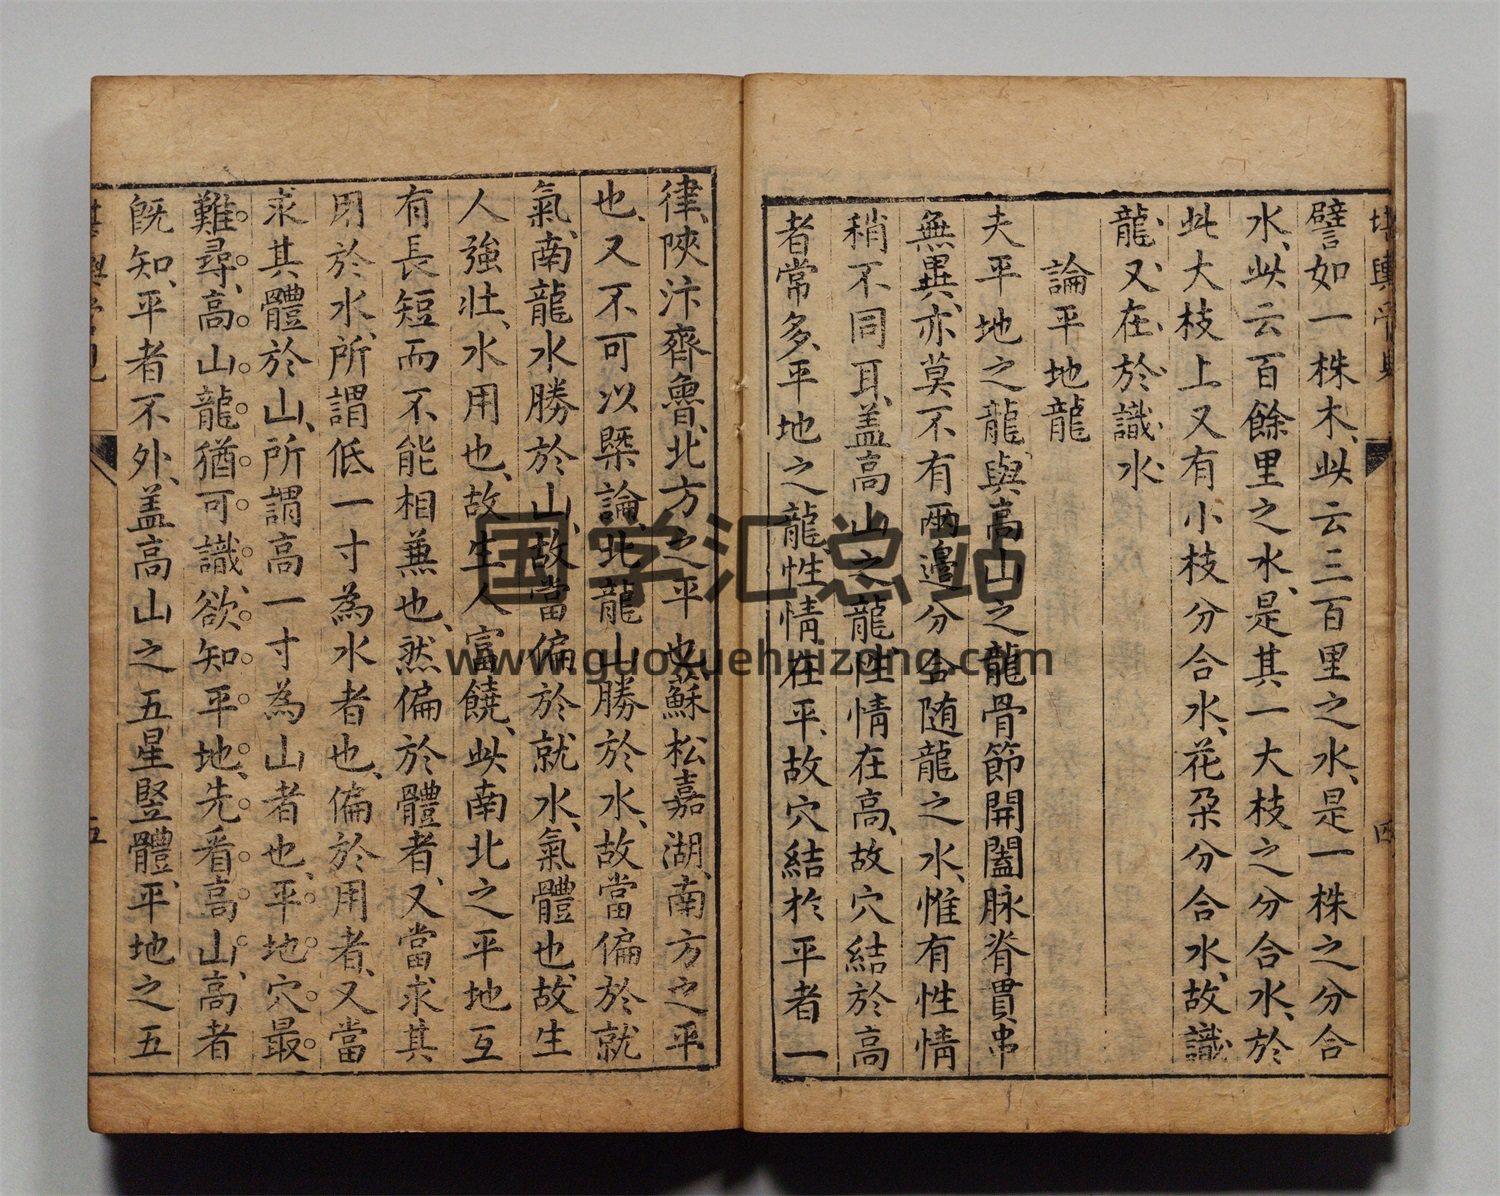 譬如一株木、此云三百里之水、是一株之分合
水、此云百餘里之水、是其一大枝之分合水、於
此大枝上又有小枝分合水、花朶分合水、故識
龍、又、在、於、識、水、
論平地龍
夫平地之龍、與高山之龍骨節開闔脉脊貫串
無異、亦莫不有兩邊分合随龍之水、惟有性情
稍不同耳、盖高山之龍性情在高、故穴結於高
者常多、平地之龍、性情在平、故穴結於平者一
律、陝汴齊魯、北方之平也、蘇松嘉湖、南方之平
也、又不可以槩論、北龍山勝於水、故當偏於就
氣、南龍水勝於山、故當偏於就水、氣體也、故生
人強壯、水用也、故生人富饒、此南北之平地互
有長短而不能相兼也、然偏於體者、又當求其
用於水、所謂低一寸為水者也、偏於用者、又當
求其體於山、所謂高一寸為山者也、平地穴最
難尋、高山龍猶可識、欲知平地、先看高山、高者
既知、平者不外、盖高山之五星竪體、平地之五
五
国学汇总站
www.guoxuehuizong.com